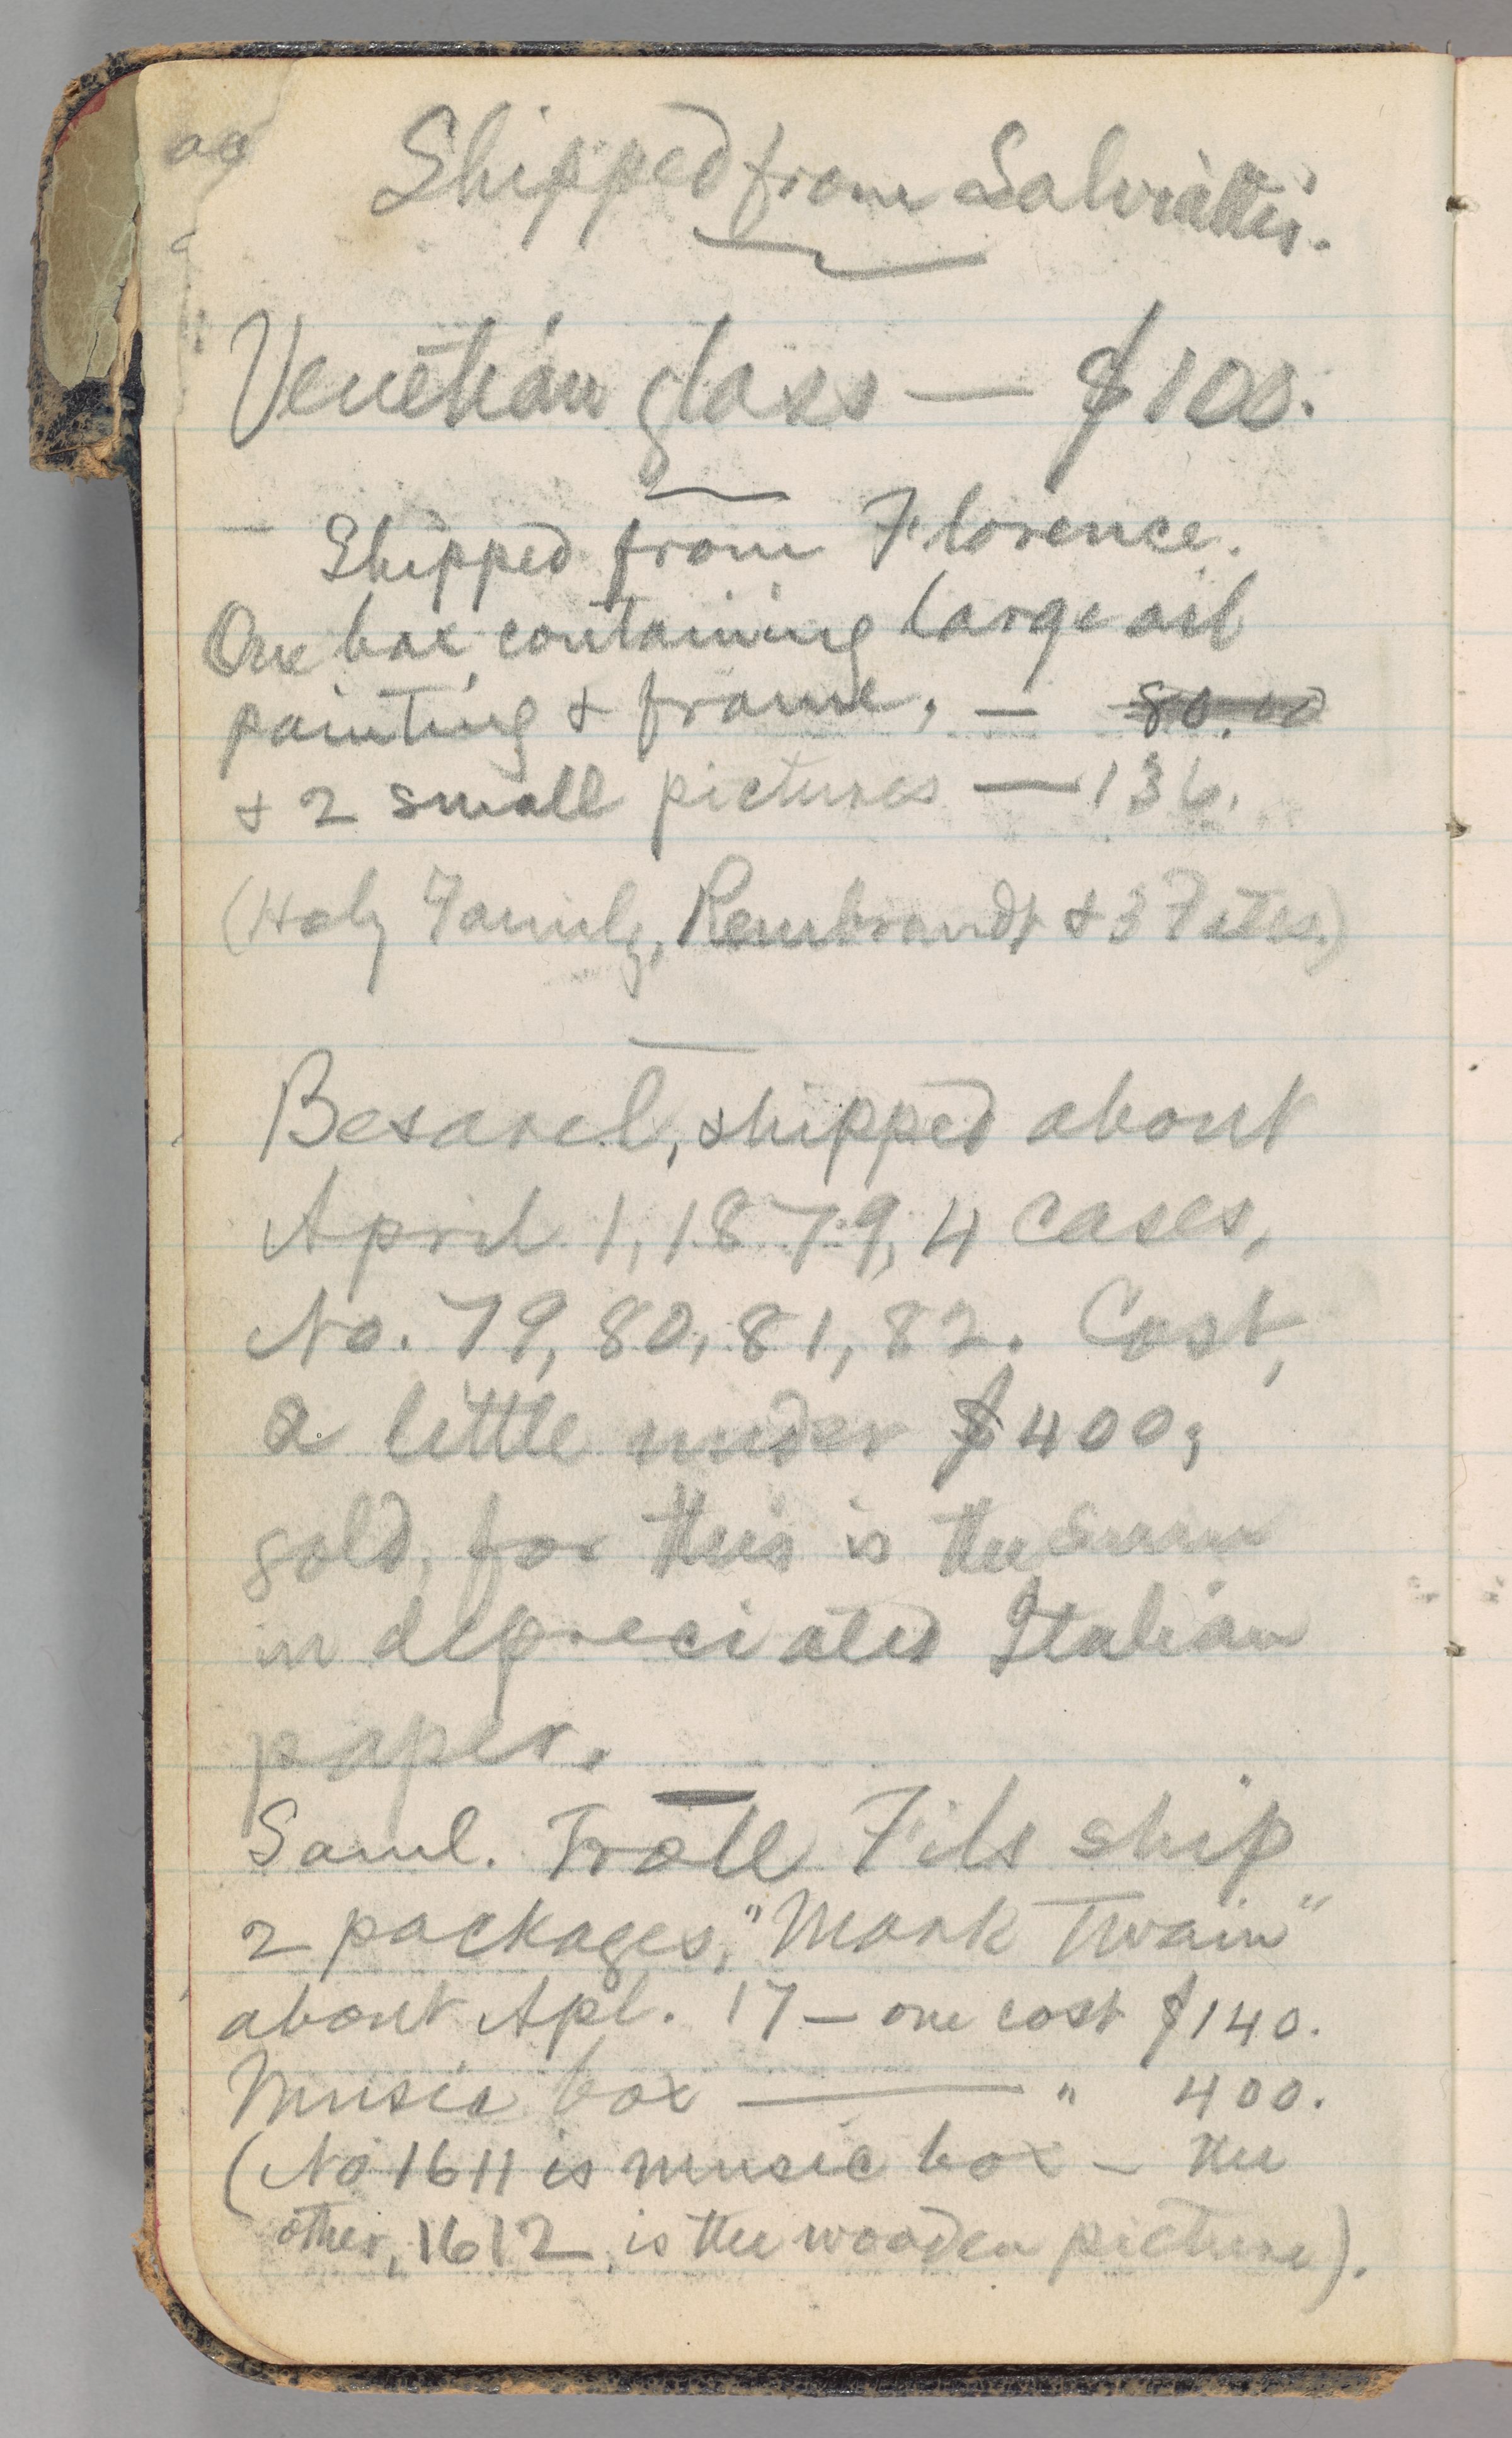 Shipped from Salviatti's.
Venetian glass — $100.
Shipped from Florence.
One box containing large oil
painting & frame, — 80.00
& 2 small pictures — 136.
(Holy Family, Rembrandt & 3 Fates.)
Besarel, shipped about
April 1, 1879, 4 cases,
No. 79, 80, 81, 82. Cost,
a little under $400,
gold, for this is the sum
in depreciated Italian
paper.
Saml. Troll Fils ship
2 packages, "Mark Twain"
about Apl. 17 — one cost $140.
Music box — " 400.
(No 1611 is music box — the
other, 1612, is the wooden picture).